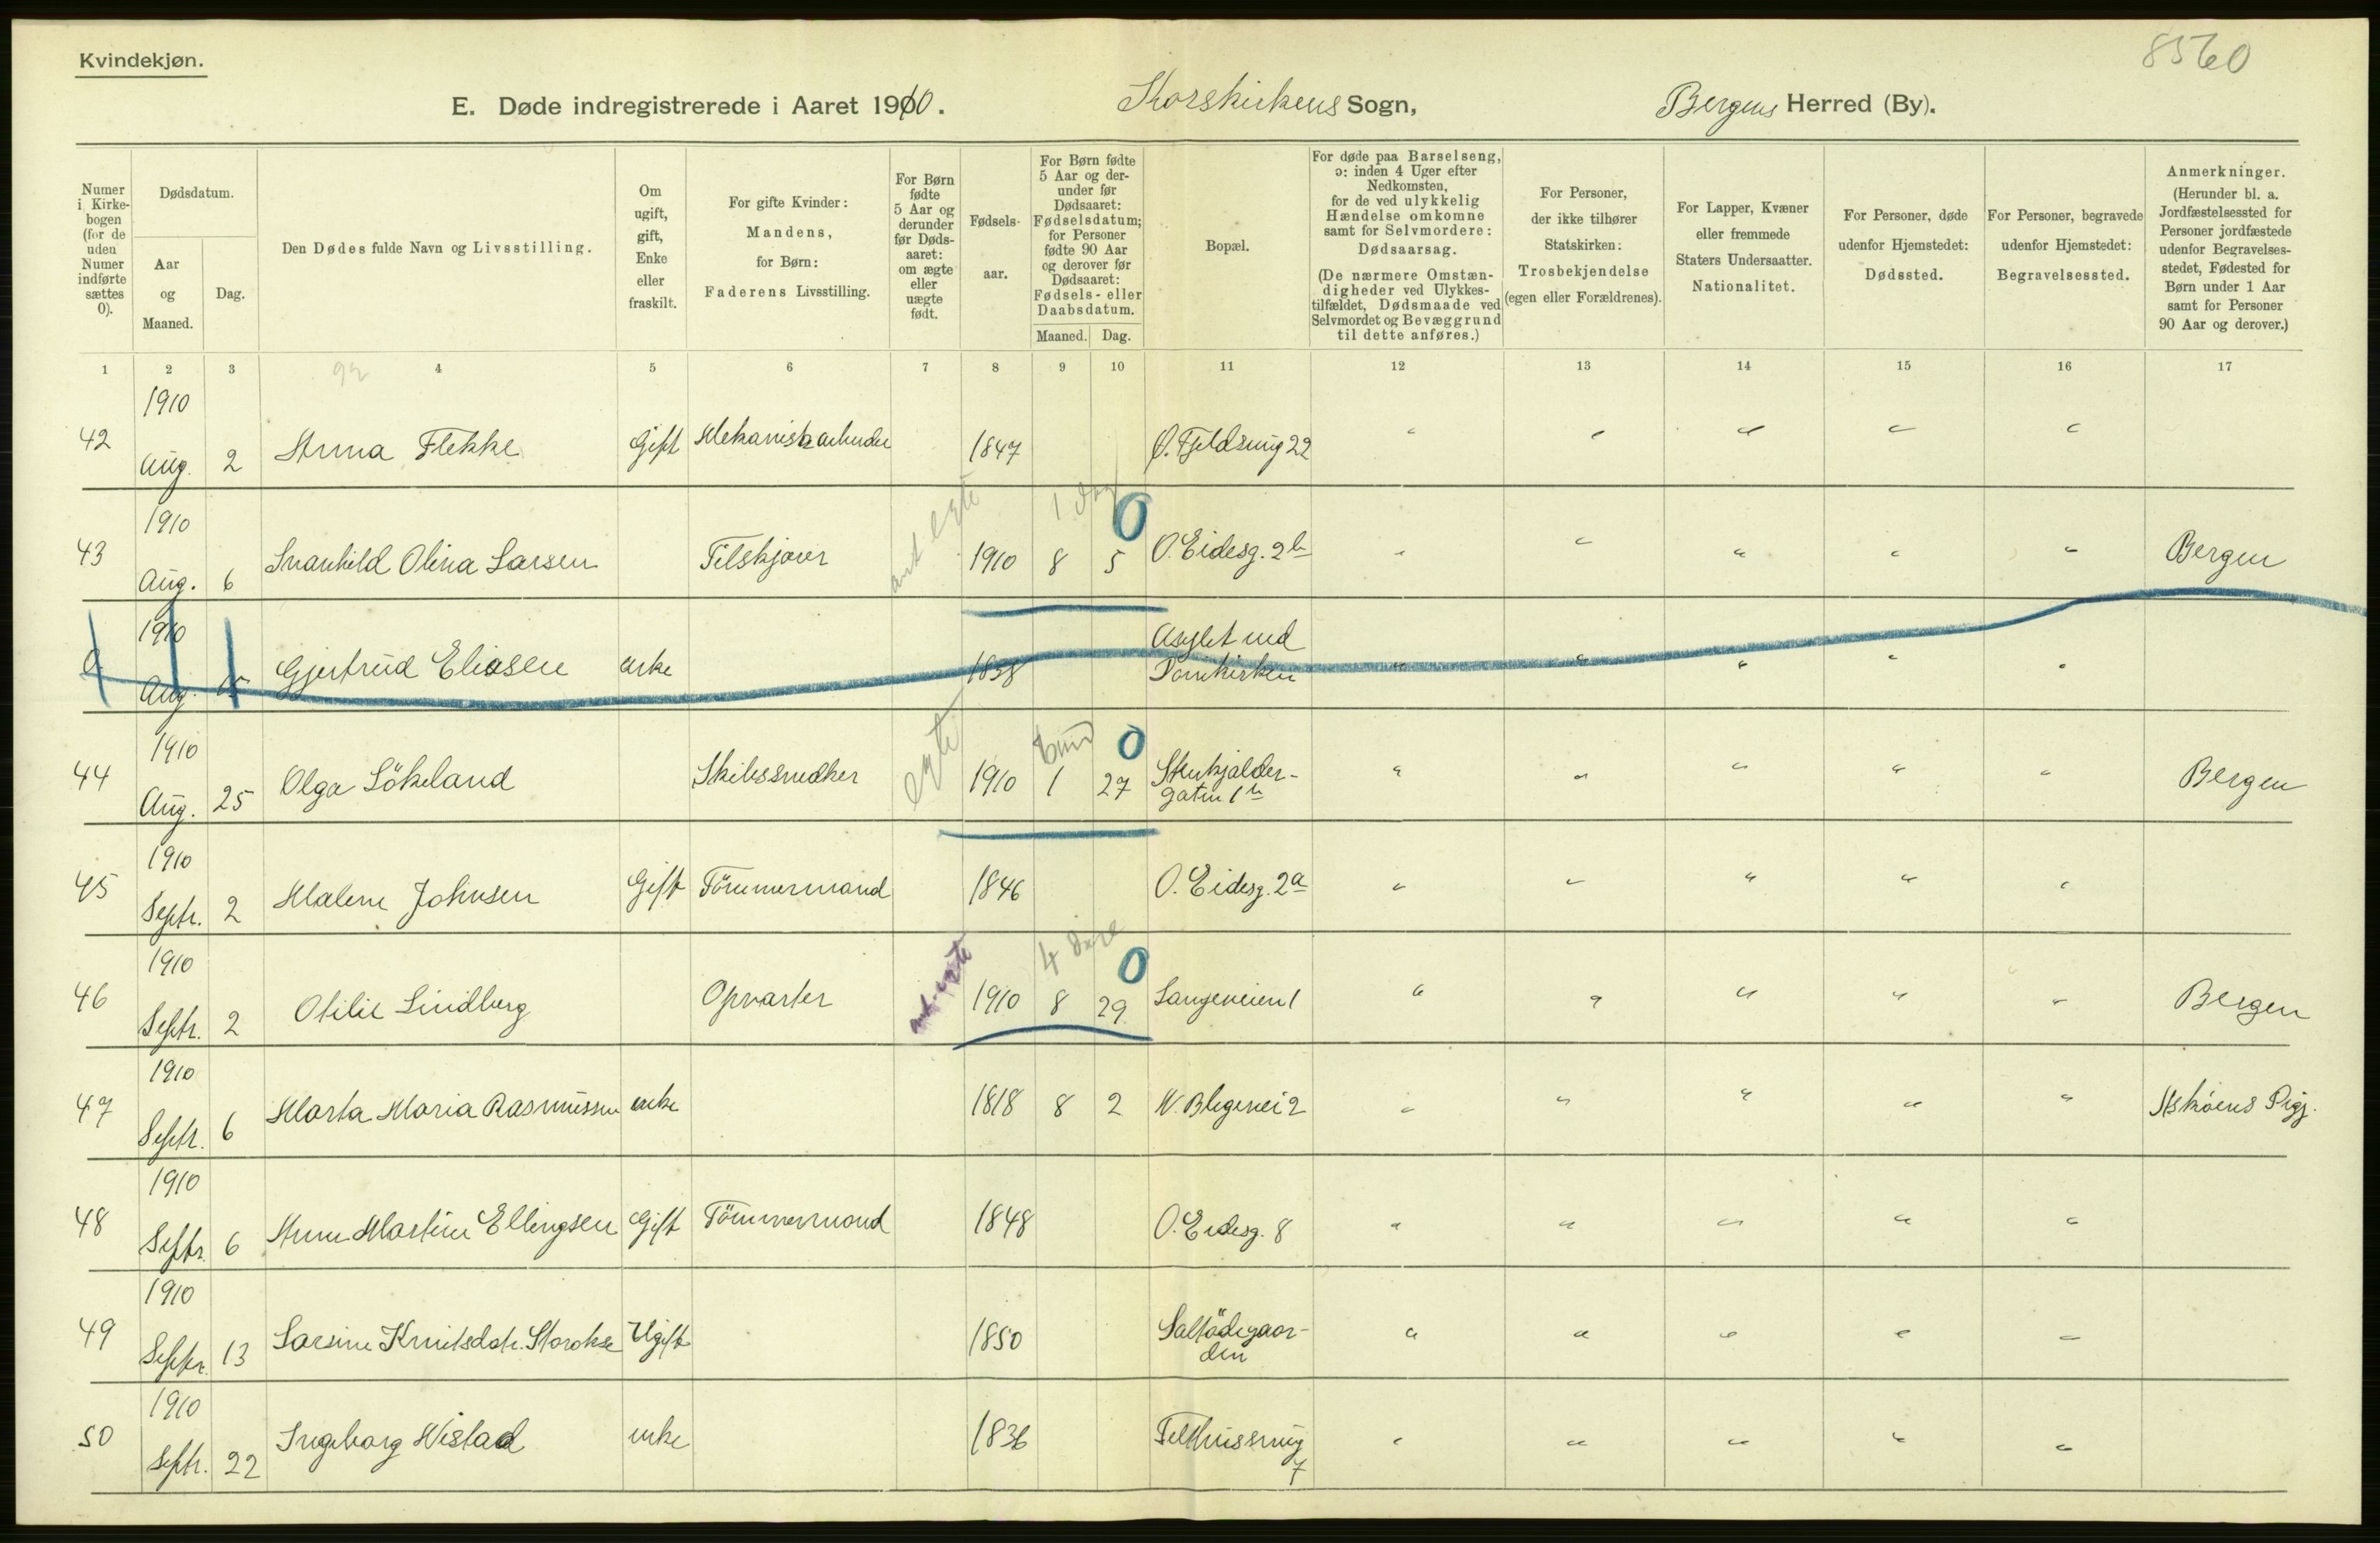 Kvindekjøn.
8560
E. Døde indregistrerede i Aaret 1910. Korskirkens Sogn, Bergens Herred (By).
Numer i Kirkebogen (for de uden Numer indførte sættes 0).
Dødsdatum.
Aar og Maaned.
Dag.
Den Dødes fulde Navn og Livsstilling.
Om ugift, gift, Enke eller fraskilt.
For gifte Kvinder: Mandens, for Børn: Faderens Livsstilling.
For Børn fødte 5 Aar og derunder før Dødsaaret: om ægte eller uægte født.
Fødselsaar.
For Børn fødte 5 Aar og derunder før Dødsaaret: Fødselsdatum; for Personer fødte 90 Aar og derover før Dødsaaret: Fødsels- eller Daabsdatum.
Maaned. Dag.
Bopæl.
For døde paa Barselseng, ɔ: inden 4 Uger efter Nedkomsten, for de ved ulykkelig Hændelse omkomne samt for Selvmordere: Dødsaarsag.
(De nærmere Omstændigheder ved Ulykkestilfældet, Dødsmaade ved Selvmordet og Bevæggrund til dette anføres.)
For Personer, der ikke tilhører Statskirken: Trosbekjendelse (egen eller Forældrenes).
For Lapper, Kvæner eller fremmede Staters Undersaatter. Nationalitet.
For Personer, døde udenfor Hjemstedet: Dødssted.
For Personer, begravede udenfor Hjemstedet: Begravelsessted.
Anmerkninger.
(Herunder bl. a. Jordfæstelsessted for Personer jordfæstede udenfor Begravelsesstedet, Fødested for Børn under 1 Aar samt for Personer 90 Aar og derover.)
1 2 3 4 5 6 7 8 9 10 11 12 13 14 15 16 17
92
1910
42 Aug. 2 Anna Flekke Gift Mekanisk arbeider 1847 Ø. Fjeldsmug 22 " " " " "
1 Dag 0
1910
43 Aug. 6 Svanhild Olina Larsen Tilskjærer ant egte 1910 8 5 O. Eidesg. 2b " " " " " Bergen
1910
0 Aug. 15 Gjertrud Eliasen enke 1838 Asylet ved Domkirken " " " " "
0
1910
44 Aug. 25 Olga Sökeland Skibssmedker egte 1910 1 27 Stenkjelder-
gaten 1b " " " " " Bergen
1910
45 Septr. 2 Malene Johnsen Gift Tömmermand 1846 O. Eidesg. 2a " " " " "
4 Dage 0
1910
46 Septr. 2 Otilie Lindberg Opvarter ant. egte 1910 8 29 Langeveien 1 " " " " " Bergen
1910
47 Septr. 6 Marta Maria Rasmussen enke 1818 8 2 N. Blegevei 2 " " " " " Askøens Prgj.
1910
48 Septr. 6 Anne Martine Ellingsen Gift Tömmermand 1848 O. Eidesg. 8 " " " " "
1910
49 Septr. 13 Sarsine Knutsdotr. Storokse Ugift 1850 " " " " "
1910
50 Septr. 22 Ingeborg Wistad enke 1836 Telthussmug
7 " " " " "